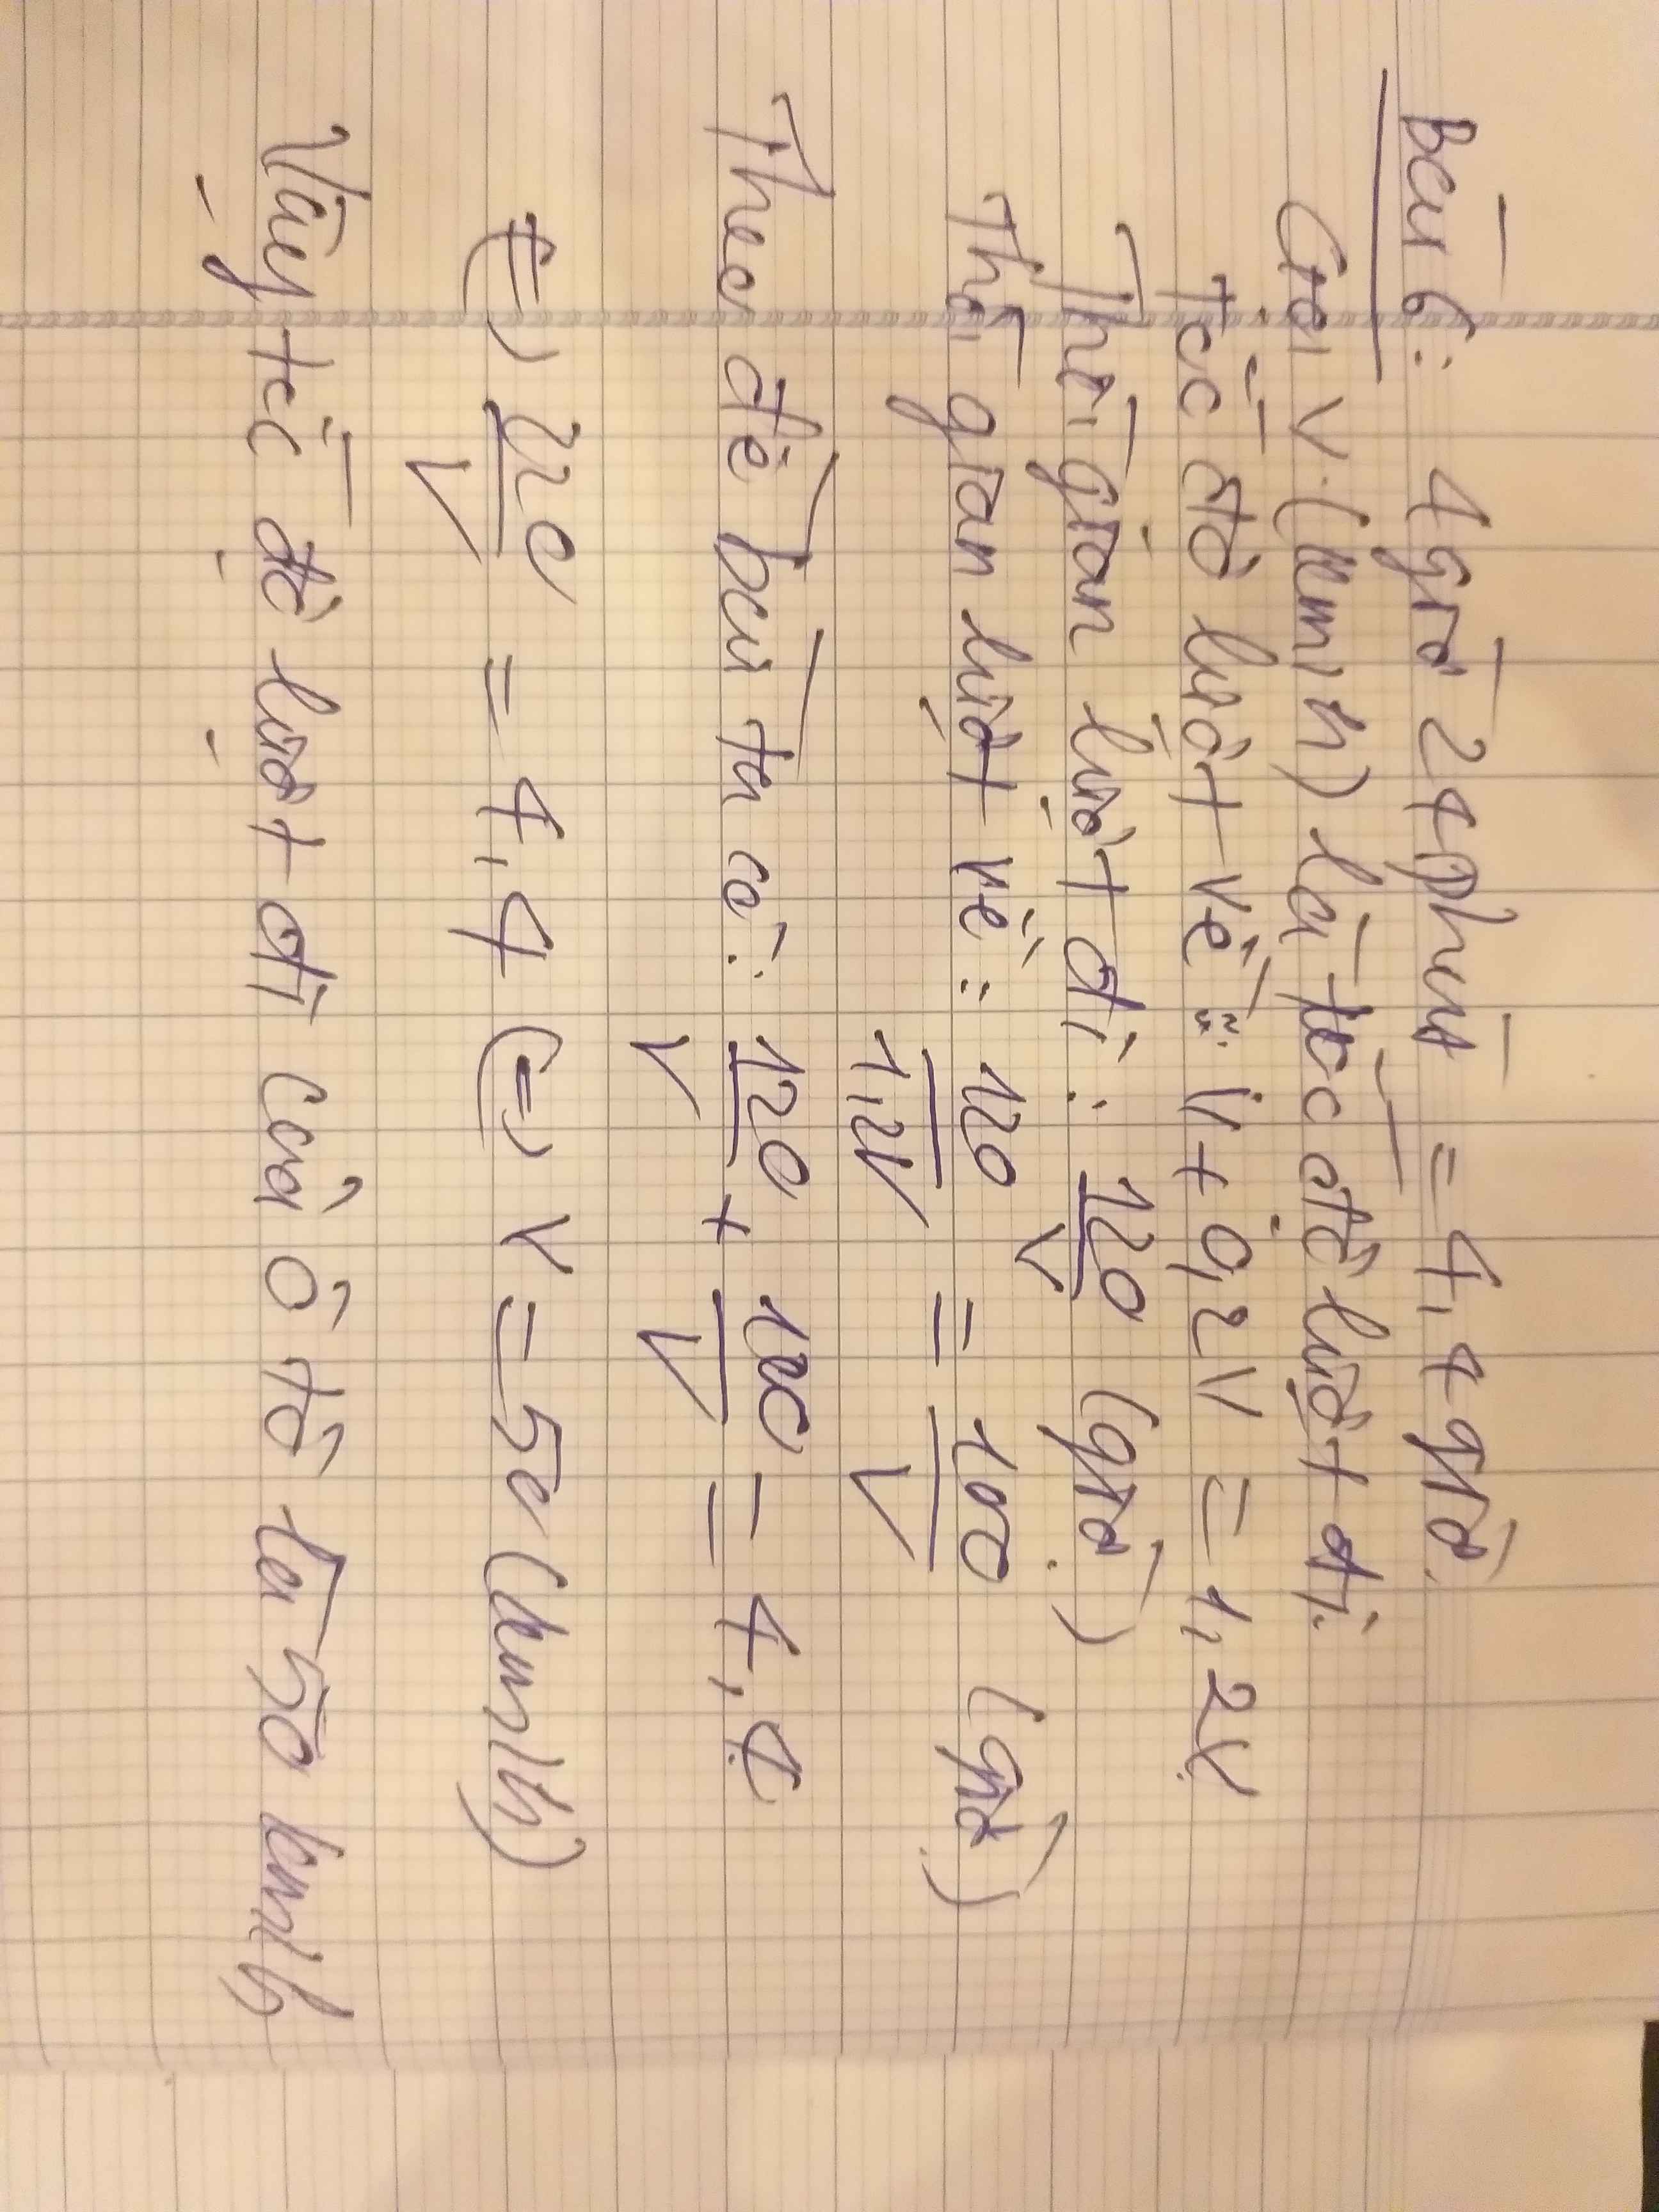 Bài 6: 4 giờ 24 phút = 4,4 giờ.
Gọi v (km/h) là tốc độ lượt đi.
Tốc độ lượt về: v + 0,2v = 1,2v
Thời gian lượt đi: 120/v (giờ)
Thời gian lượt về: 120/1,2v = 100/v (giờ)
Theo đề bài ta có: 120/v + 100/v = 4,4
<=> 220/v = 4,4 <=> v = 50 (km/h)
Vậy tốc độ lượt đi của ô tô là 50 km/h